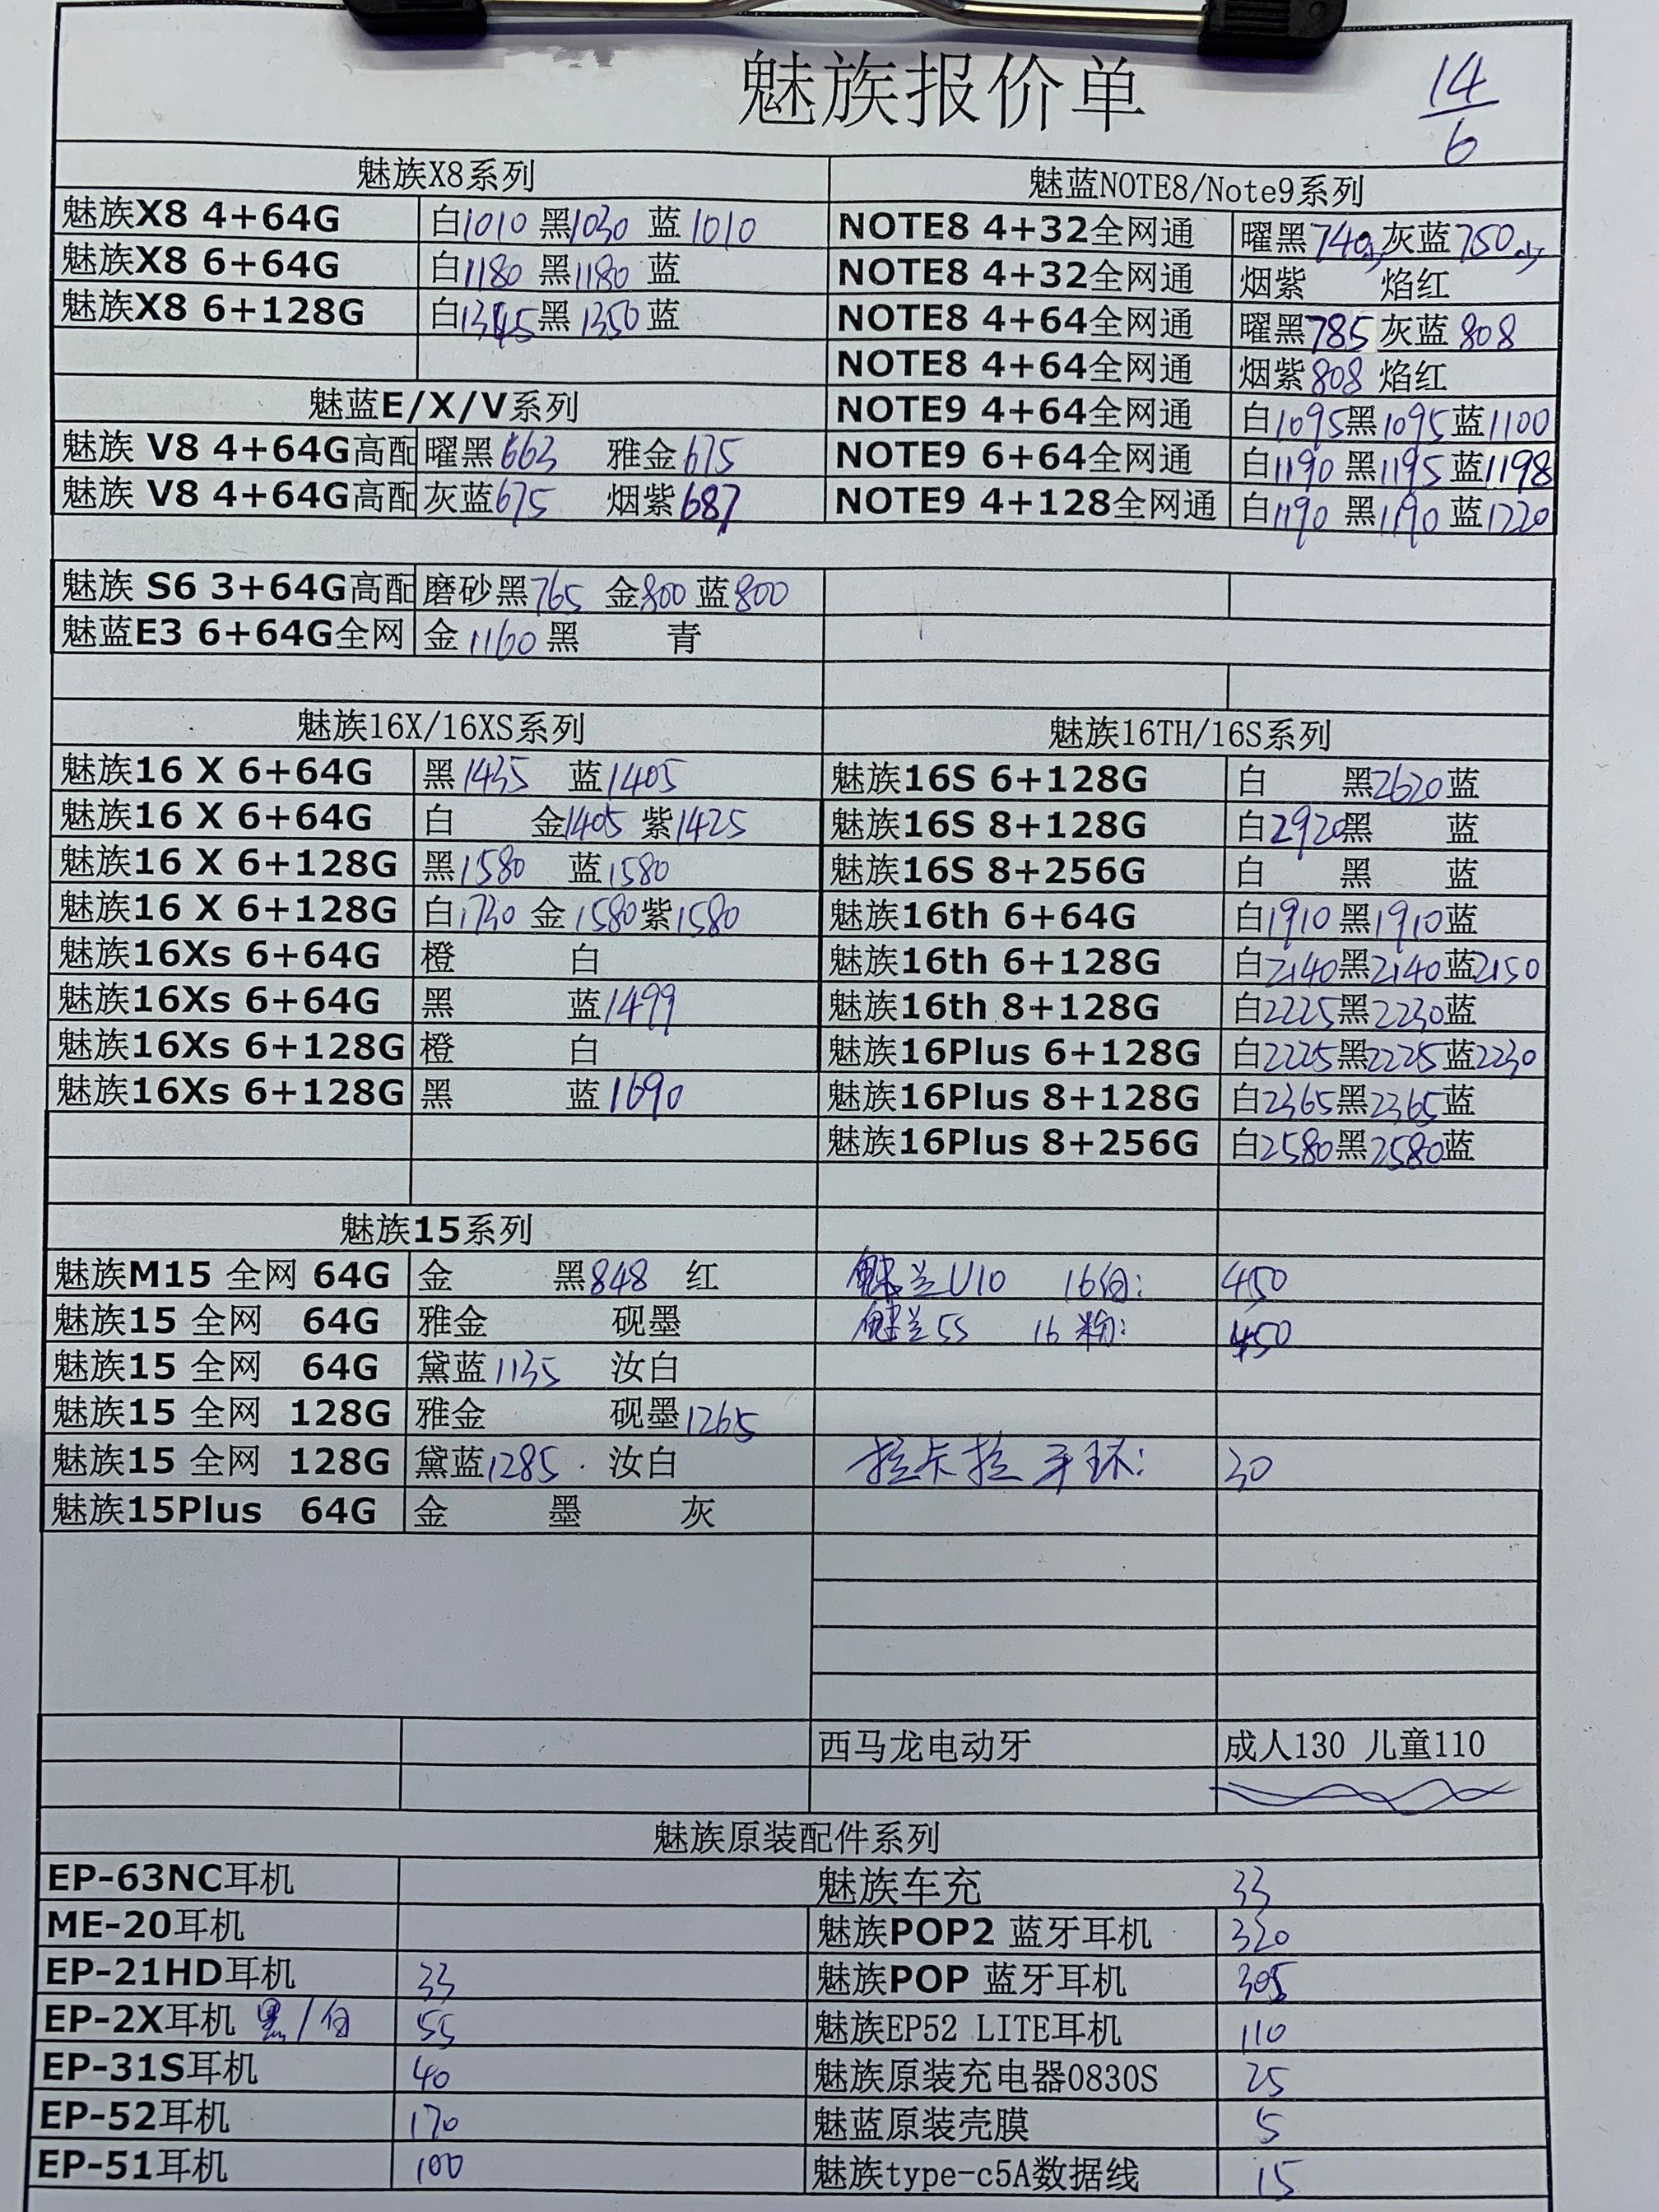 魅族报价单
14/6
魅族X8系列
魅族X8 4+64G 白1010 黑1030 蓝1010
魅族X8 6+64G 白1180 黑1180 蓝
魅族X8 6+128G 白1345 黑1350 蓝
魅蓝E/X/V系列
魅族 V8 4+64G高配 曜黑663 雅金675
魅族 V8 4+64G高配 灰蓝675 烟紫687
魅族 S6 3+64G高配 磨砂黑765 金800 蓝800
魅蓝E3 6+64G全网 金1160 黑 青
魅蓝NOTE8/Note9系列
NOTE8 4+32全网通 曜黑740少 灰蓝750少
NOTE8 4+32全网通 烟紫 焰红
NOTE8 4+64全网通 曜黑785 灰蓝808
NOTE8 4+64全网通 烟紫808 焰红
NOTE9 4+64全网通 白1095黑1095蓝1100
NOTE9 6+64全网通 白1190 黑1195蓝1198
NOTE9 4+128全网通 白1190 黑1190 蓝1220
魅族16X/16XS系列
魅族16 X 6+64G 黑1435 蓝1405
魅族16 X 6+64G 白 金1405 紫1425
魅族16 X 6+128G 黑1580 蓝1580
魅族16 X 6+128G 白1730 金1580紫1580
魅族16Xs 6+64G 橙 白
魅族16Xs 6+64G 黑 蓝1499
魅族16Xs 6+128G 橙 白
魅族16Xs 6+128G 黑 蓝1690
魅族16TH/16S系列
魅族16S 6+128G 白 黑2620蓝
魅族16S 8+128G 白2920黑 蓝
魅族16S 8+256G 白 黑 蓝
魅族16th 6+64G 白1910 黑1910蓝
魅族16th 6+128G 白2140黑2140蓝2150
魅族16th 8+128G 白2225黑2230蓝
魅族16Plus 6+128G 白2225黑2225蓝2230
魅族16Plus 8+128G 白2365黑2365蓝
魅族16Plus 8+256G 白2580黑2580蓝
魅族15系列
魅族M15 全网 64G 金 黑848 红
魅族15 全网 64G 雅金 砚墨
魅族15 全网 64G 黛蓝1135 汝白
魅族15 全网 128G 雅金 砚墨1265
魅族15 全网 128G 黛蓝1285 汝白
魅族15Plus 64G 金 墨 灰
魅兰U10 16白: 450
魅兰5S 16粉: 450
拉卡拉手环: 30
西马龙电动牙 成人130 儿童110
魅族原装配件系列
EP-63NC耳机 魅族车充 33
ME-20耳机 魅族POP2 蓝牙耳机 320
EP-21HD耳机 33 魅族POP 蓝牙耳机 305
EP-2X耳机 黑/白 55 魅族EP52 LITE耳机 110
EP-31S耳机 40 魅族原装充电器0830S 25
EP-52耳机 170 魅蓝原装壳膜 5
EP-51耳机 100 魅族type-c5A数据线 15